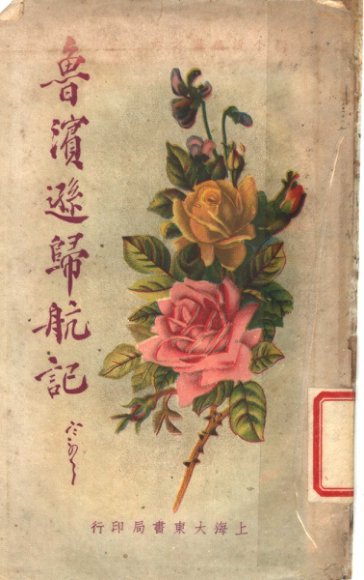 魯濱遜歸航記
上海大東書局印行